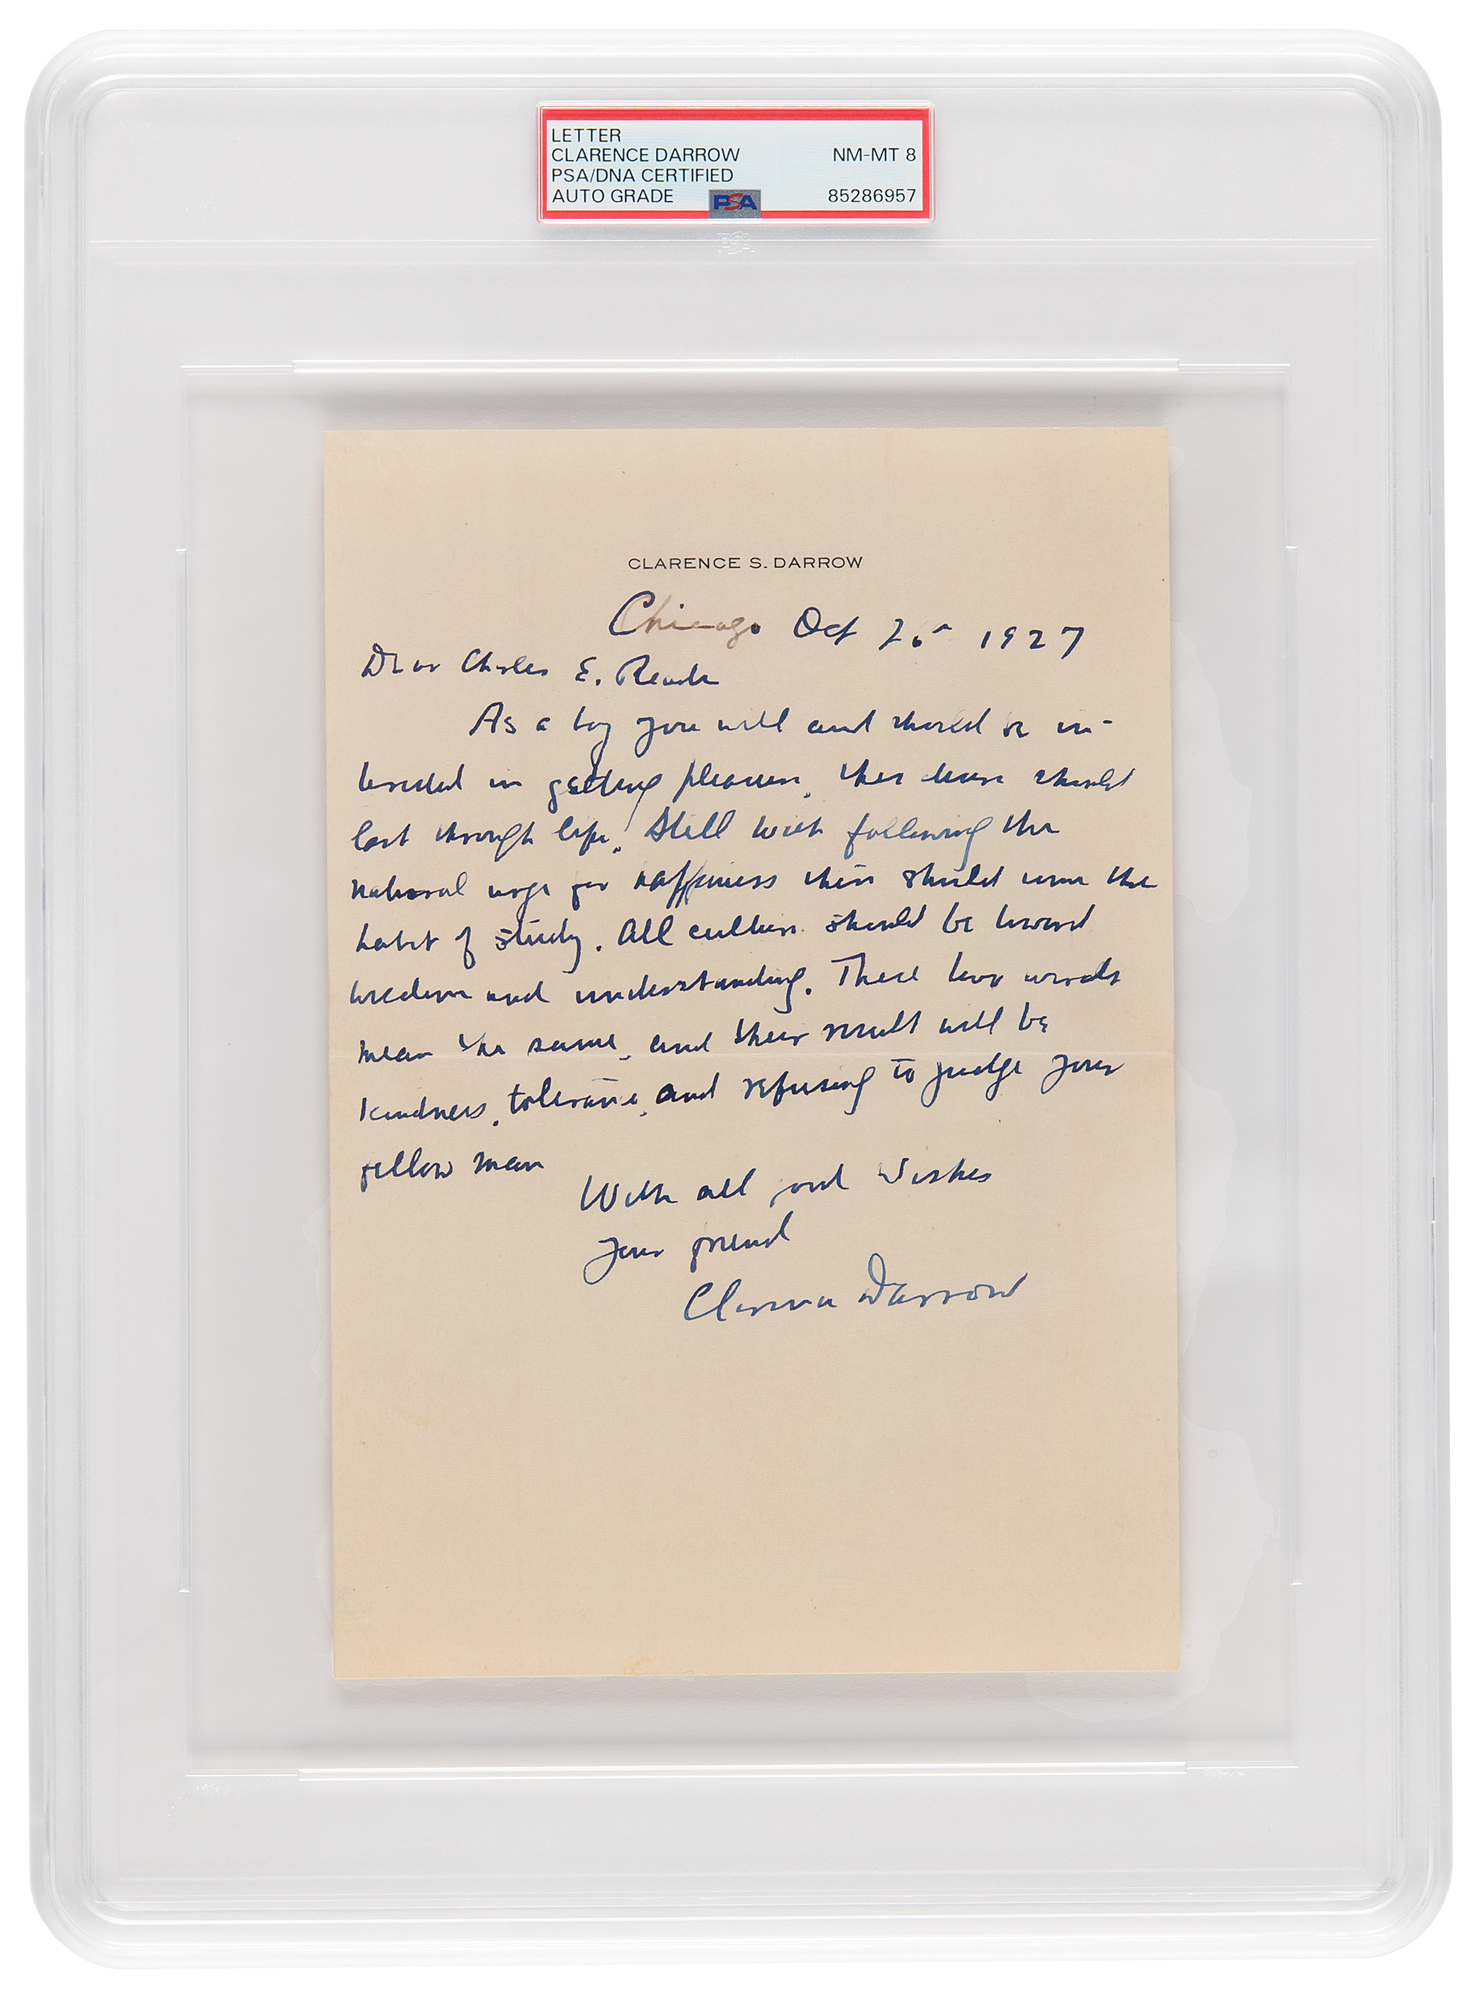 LETTER
CLARENCE DARROW NM-MT 8
PSA/DNA CERTIFIED
AUTO GRADE PSA 85286957
CLARENCE S. DARROW
Chicago Oct 26th 1927
Dear Charles E.
As a boy you will and should be in-
terested in getting pleasure, this desire should
last through life. Still with following the
natural urge for happiness there should come the
habit of study. All culture should be toward
wisdom and understanding. These two words
mean the same, and their result will be
kindness, tolerance, and refusing to judge your
fellow man
With all good Wishes
Your friend
Clarence Darrow